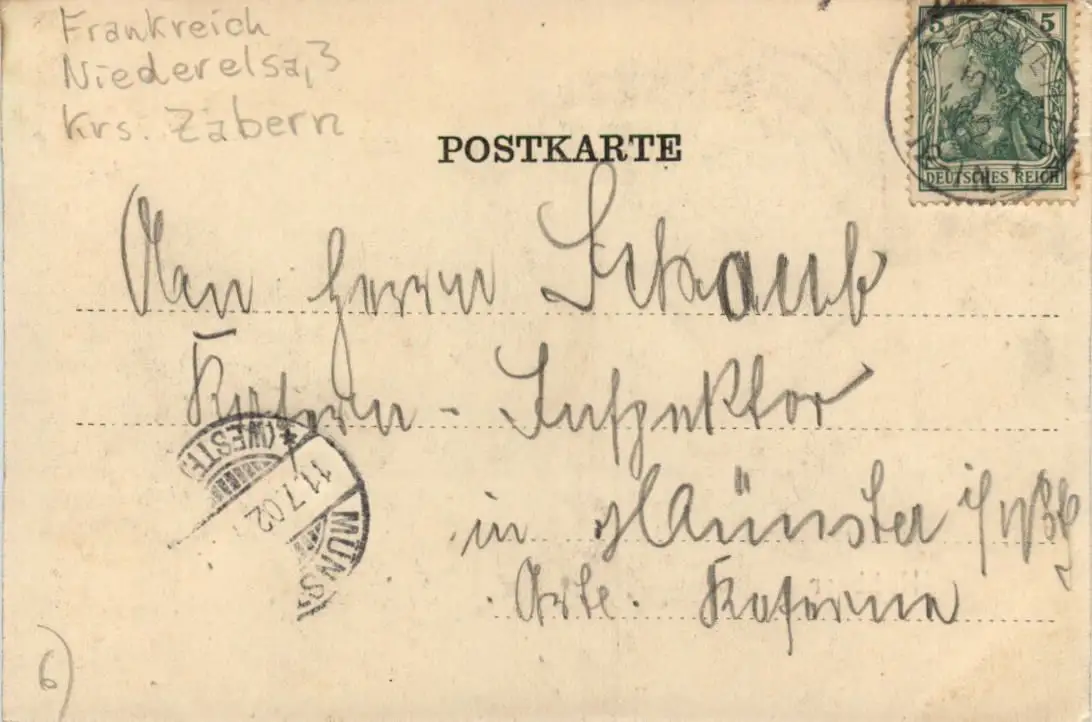 Frankreich
Niederelsa,3
Krs. Zabern
POSTKARTE
5 5
DEUTSCHES REICH
An Herrn Schaub
Kasern - Inspektor
in Münster i/
Arte. Kaserne
*(WESTF.)
11.7.02
MÜNS
6)